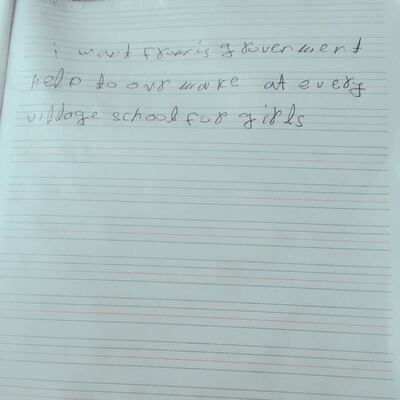 i want from is grovenment
help to our make at every
village school for girls